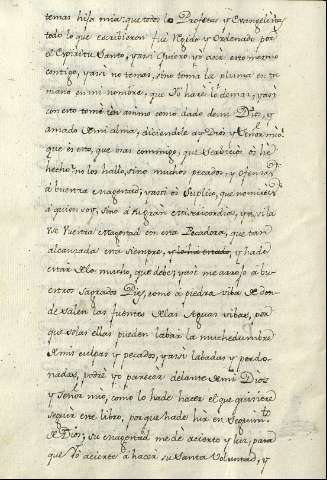 temas hija mia: que todos los Profetas, y Evangelistas
todo lo que escrivieron fue regido y ordenado por
el Espiritu Santo, y assi quiero yo asistir en esto mesmo
contigo, y assi no temas, sino toma la pluma en tu
mano en mi nombre, que Yo haré lo demas, y assi
con esto tomé tan animo como dado de mi Dios, y
amado de mi alma, diciendole ay Dios y Señor mio
que es esto, que usas conmigo, que servicios os he
hecho? no los hallo, sino muchos pecados, y ofensas
à vuestra Magestad, y assi os suplico, que no mireis
à quien soy, sino à su gran misericordia, y a si la
use vuestra Magestad con esta Pecadora, que tan
alcanzada esta siempre, y ha de
estar de lo mucho, que debe; y assi me arrojo a bu-
estros sagrados Pies, como à piedra viba de don-
de salen las fuentes de las Aguas vibas, por
que solas ellas pueden labar la muchedumbre
de mis culpas y pecados, y assi labadas y perdo-
nadas, podré yo parecer delante de mi Dios
y Señor mio, como lo hade hacer el que quisiere
seguir este libro, porque hade hir en seguim.to
de Dios; su Magestad me de acierto y luz, para
que Yo acierte à hacer su Santa Voluntad, y